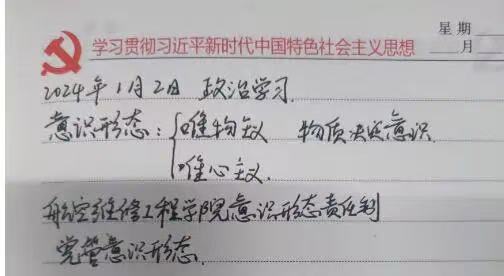 星期
学习贯彻习近平新时代中国特色社会主义思想
月
2024年1月2日 政治学习.
意识形态：唯物主义 物质决定意识.
唯心主义.
航空维修工程学院意识形态责任制
党管意识形态.